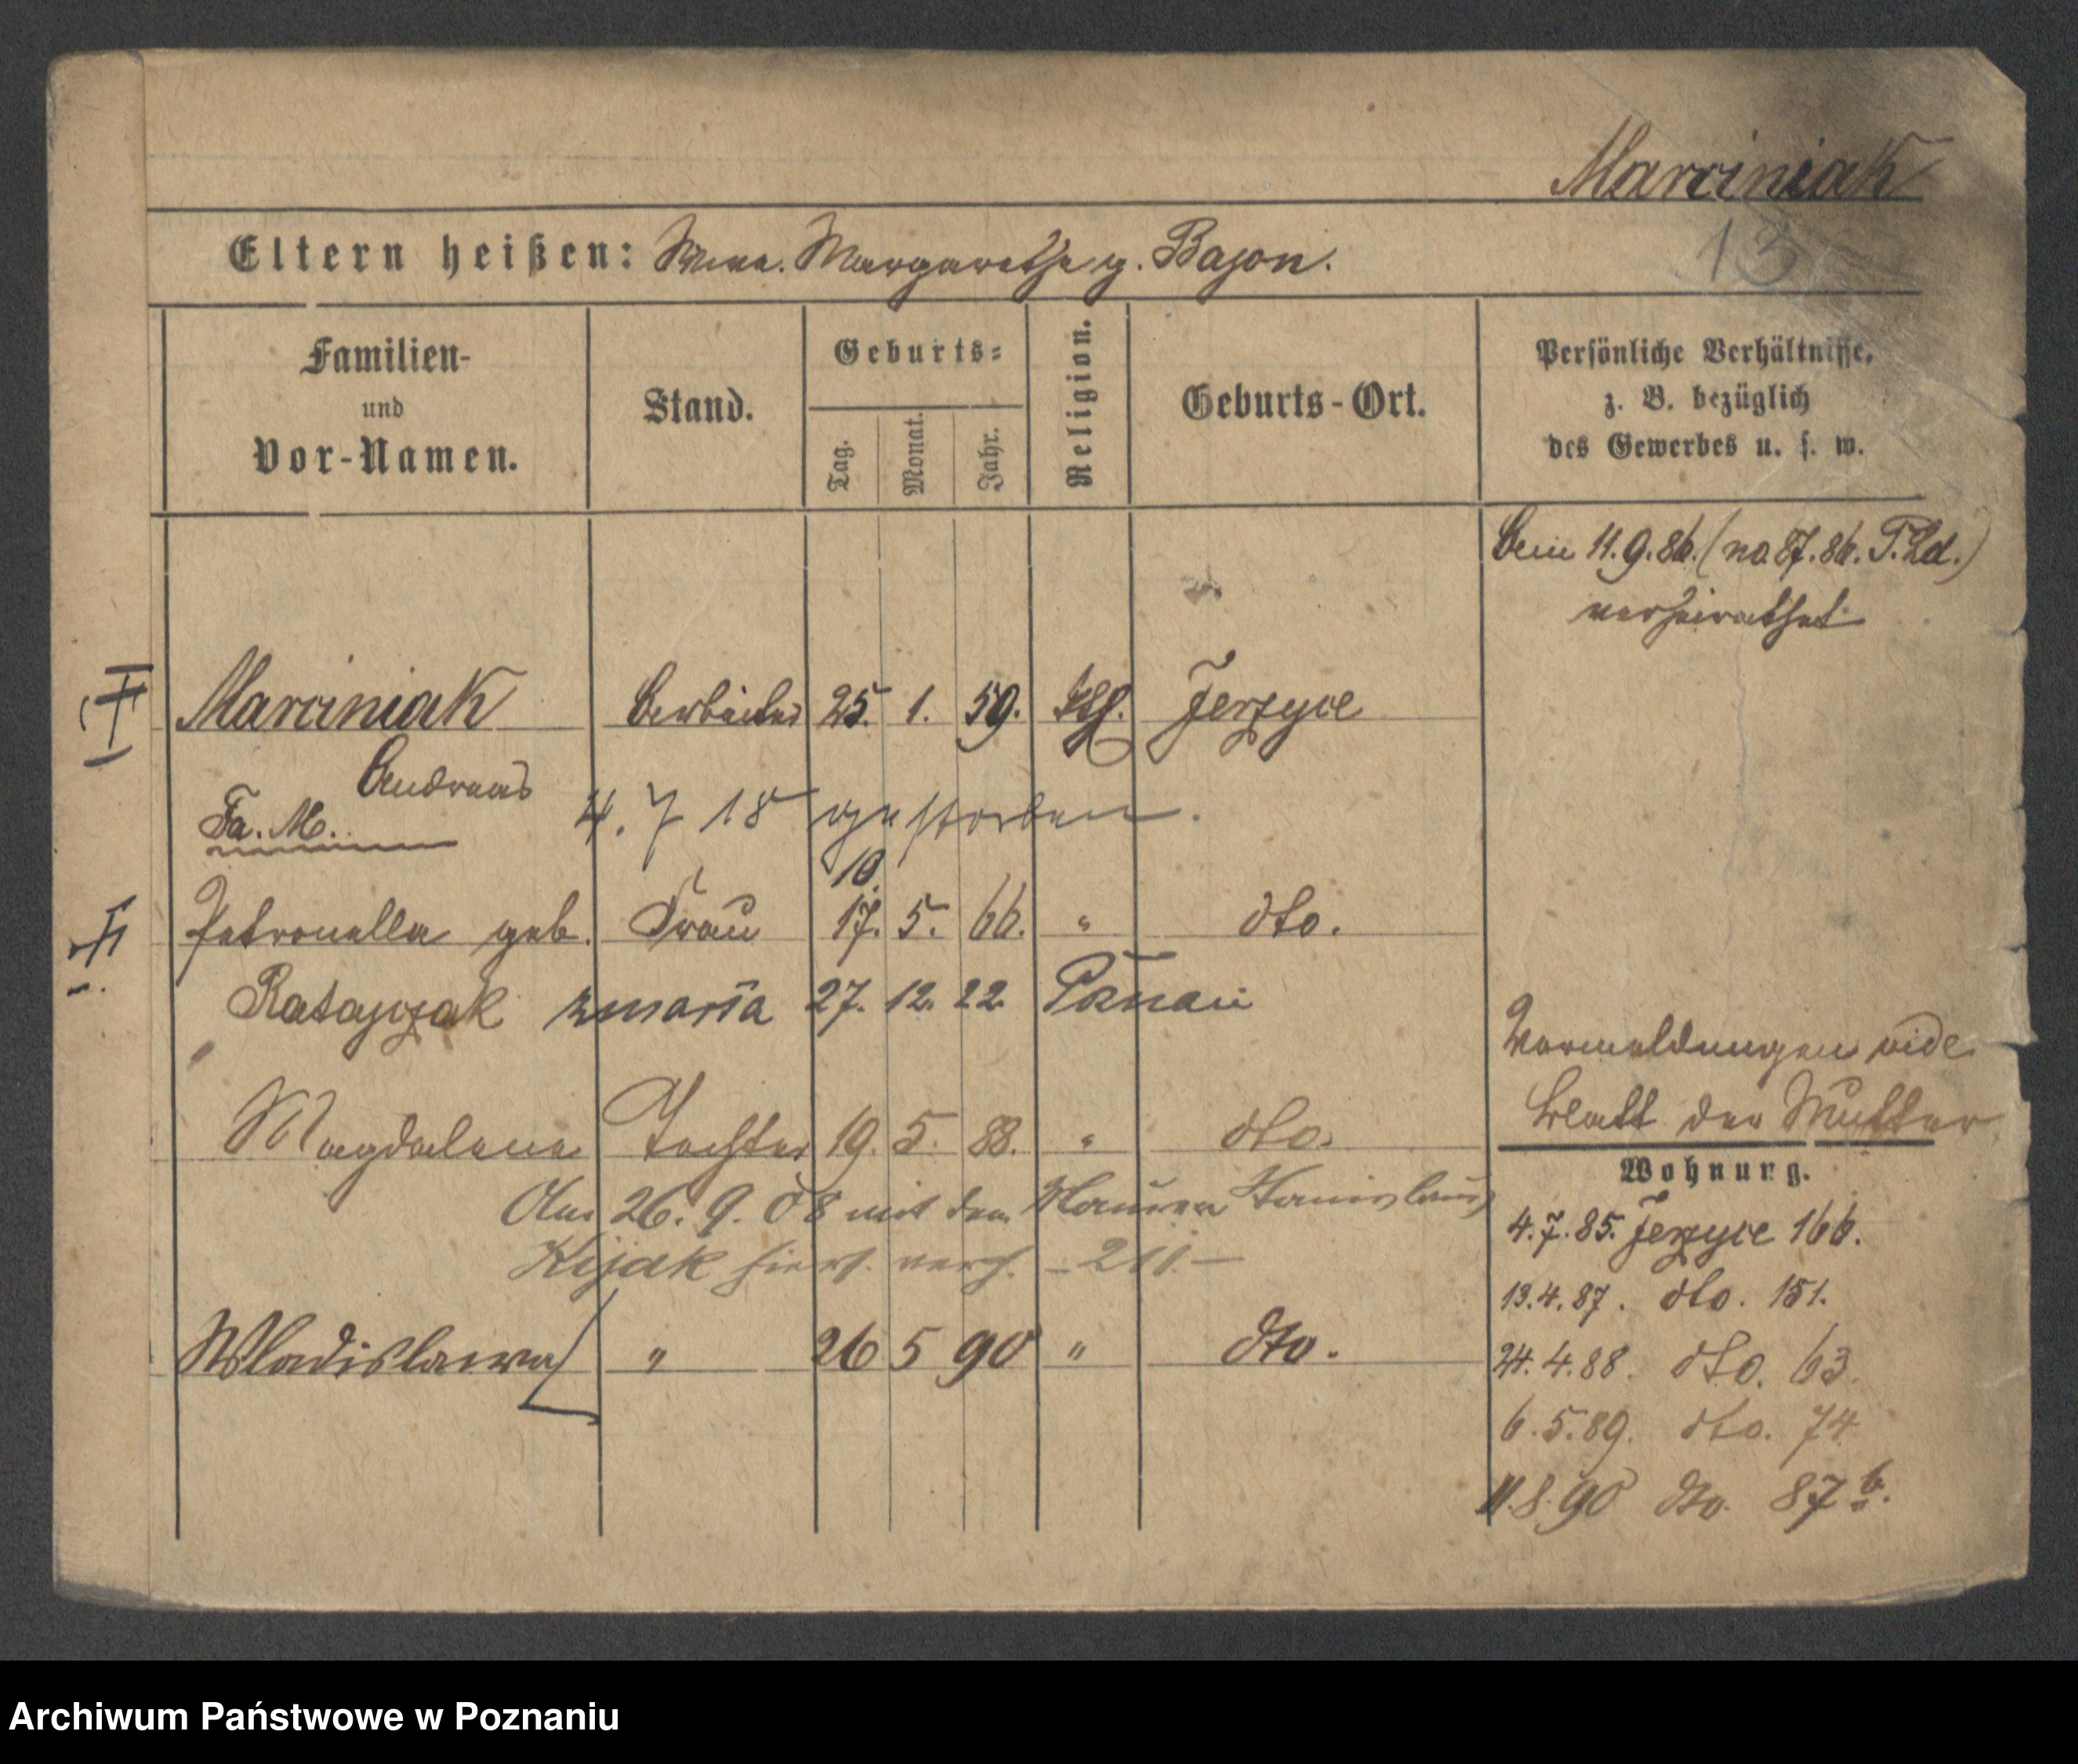 Marciniak
13
Eltern heißen: Wwe. Margarethe g. Bajon.
Familien- und Vor-Namen.
Stand.
Geburts-
Tag.
Monat.
Jahr.
Religion.
Geburts-Ort.
Persönliche Verhältnisse,
z. B. bezüglich
des Gewerbes u. s. w.
Am 11.9.86. (no 87.86. T.Ld.)
verheirathet
Marciniak Arbeiter 25. 1. 59. Kth. Jerzyce
Andreas
Fa. M.
4. 7 18 gestorben.
10.
Petronella geb. Frau 17. 5. 66. " dto.
Ratajczak zmarła 27. 12. 22. Poznań
Vormeldungen vide
Blatt der Mutter
Magdalena Tochter 19. 5. 88. " dto.
Am 26. 9. 08 mit dem Maurer Stanislaus
Kijak hiers. verh. - 211. -
Wladislawa " 26 5 90 " dto.
Wohnung.
4.7.85. Jerzyce 166.
13.4.87. dto. 151.
24.4.88. dto. 63.
6.5.89. dto. 74
11.8.90 dto. 87 b.
Archiwum Państwowe w Poznaniu